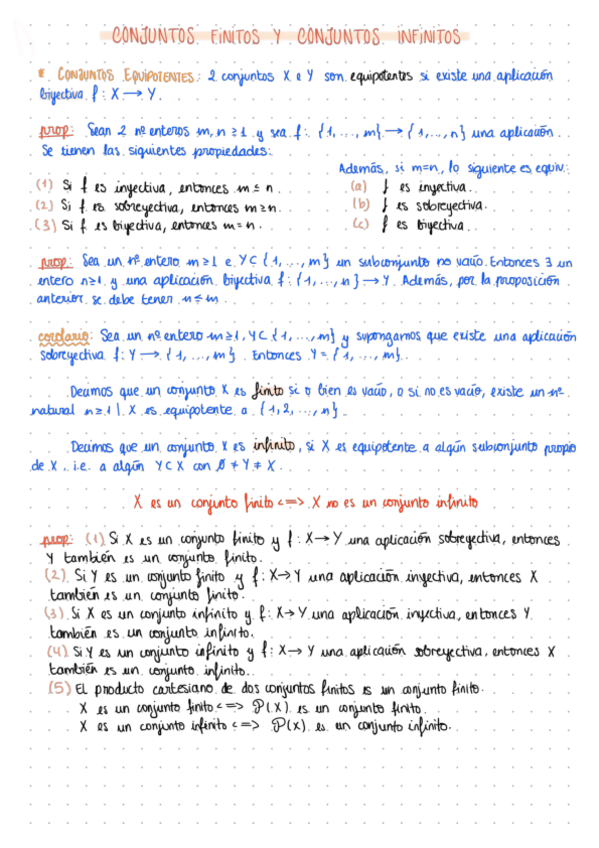 CONJUNTOS FINITOS Y CONJUNTOS INFINITOS
* CONJUNTOS EQUIPOTENTES: 2 conjuntos X e Y son equipotentes si existe una aplicación
biyectiva f: X → Y.
prop: Sean 2 nº enteros m, n ≥ 1 y sea f: {1, ..., m} → {1, ..., n} una aplicación.
Se tienen las siguientes propiedades:
Además, si m=n, lo siguiente es equiv.:
(1) Si f es inyectiva, entonces m ≤ n.
(a) f es inyectiva.
(2) Si f es sobreyectiva, entonces m ≥ n.
(b) f es sobreyectiva.
(3) Si f es biyectiva, entonces m = n.
(c) f es biyectiva.
prop: Sea un nº entero m ≥ 1 e Y ⊂ {1, ..., m} un subconjunto no vacío. Entonces ∃ un
entero n ≥ 1 y una aplicación biyectiva f: {1, ..., n} → Y. Además, por la proposición
anterior se debe tener n ≤ m.
corolario: Sea un nº entero m ≥ 1, Y ⊂ {1, ..., m} y supongamos que existe una aplicación
sobreyectiva f: Y → {1, ..., m}. Entonces Y = {1, ..., m}.
Decimos que un conjunto X es finito si o bien es vacío, o si no es vacío, existe un nº
natural n ≥ 1 | X es equipotente a {1, 2, ..., n}.
Decimos que un conjunto X es infinito, si X es equipotente a algún subconjunto propio
de X. i.e. a algún Y ⊂ X con ∅ ≠ Y ≠ X.
X es un conjunto finito <=> X no es un conjunto infinito
prop: (1) Si X es un conjunto finito y f: X → Y una aplicación sobreyectiva, entonces
Y también es un conjunto finito.
(2) Si Y es un conjunto finito y f: X → Y una aplicación inyectiva, entonces X
también es un conjunto finito.
(3) Si X es un conjunto infinito y f: X → Y una aplicación inyectiva, entonces Y
también es un conjunto infinito.
(4) Si Y es un conjunto infinito y f: X → Y una aplicación sobreyectiva, entonces X
también es un conjunto infinito.
(5) El producto cartesiano de dos conjuntos finitos es un conjunto finito.
X es un conjunto finito <=> P(X) es un conjunto finito.
X es un conjunto infinito <=> P(X) es un conjunto infinito.